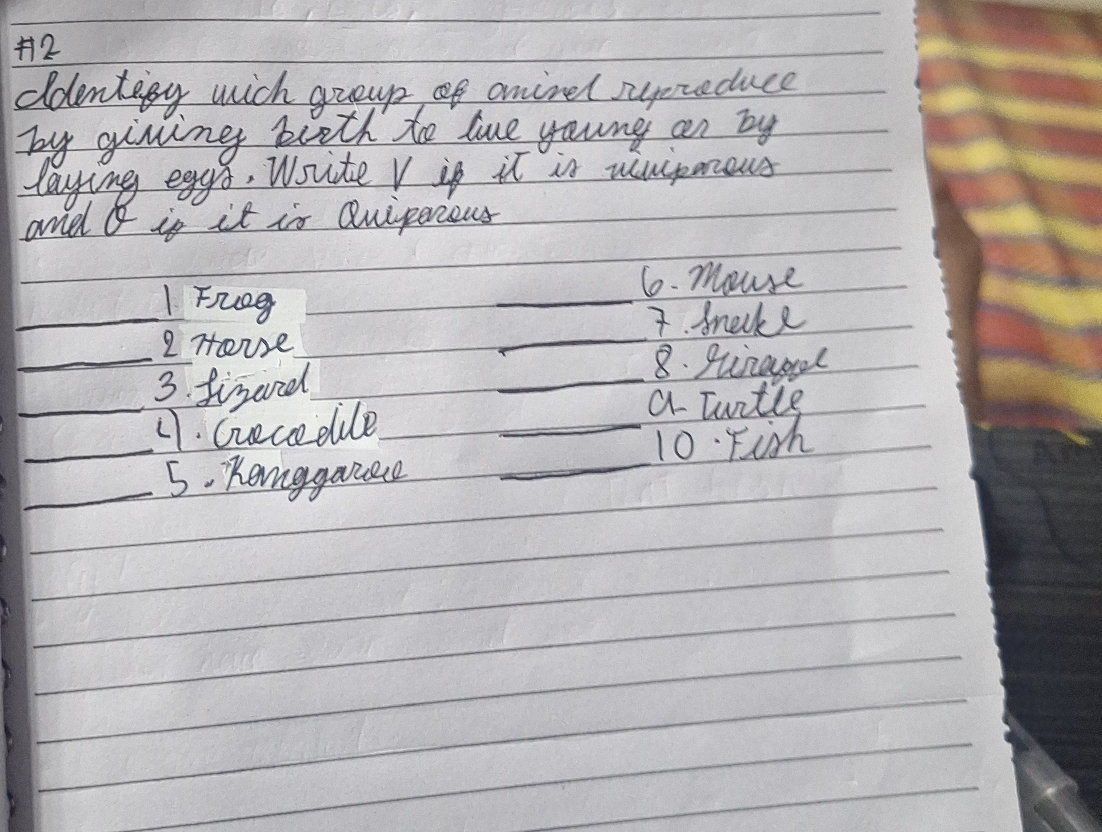 #2
Identify wich group of animel reproduce
by giving birth to live young or by
laying eggs. Write V if it is viviparous
and O if it is Oviparous
1. Frog
2 Horse
3. Lizard
4. Crocodile
5. Kanggaroo
6. Mouse
7. Snake
8. Giraffe
9- Turtle
10. Fish